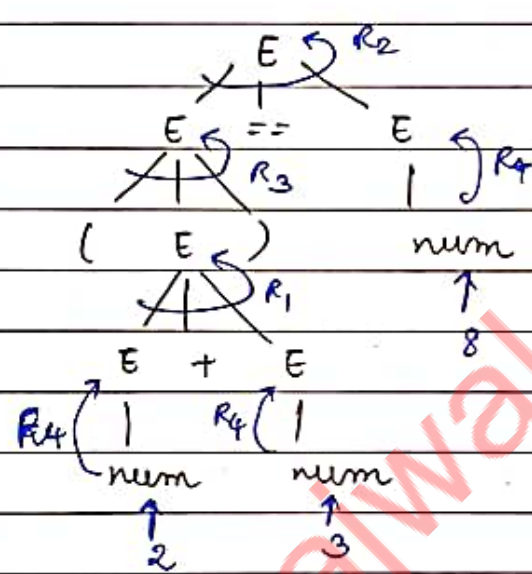 E R2
E == E
R3 R4
( E ) num
R1
8
E + E
R4 R4
num num
2 3